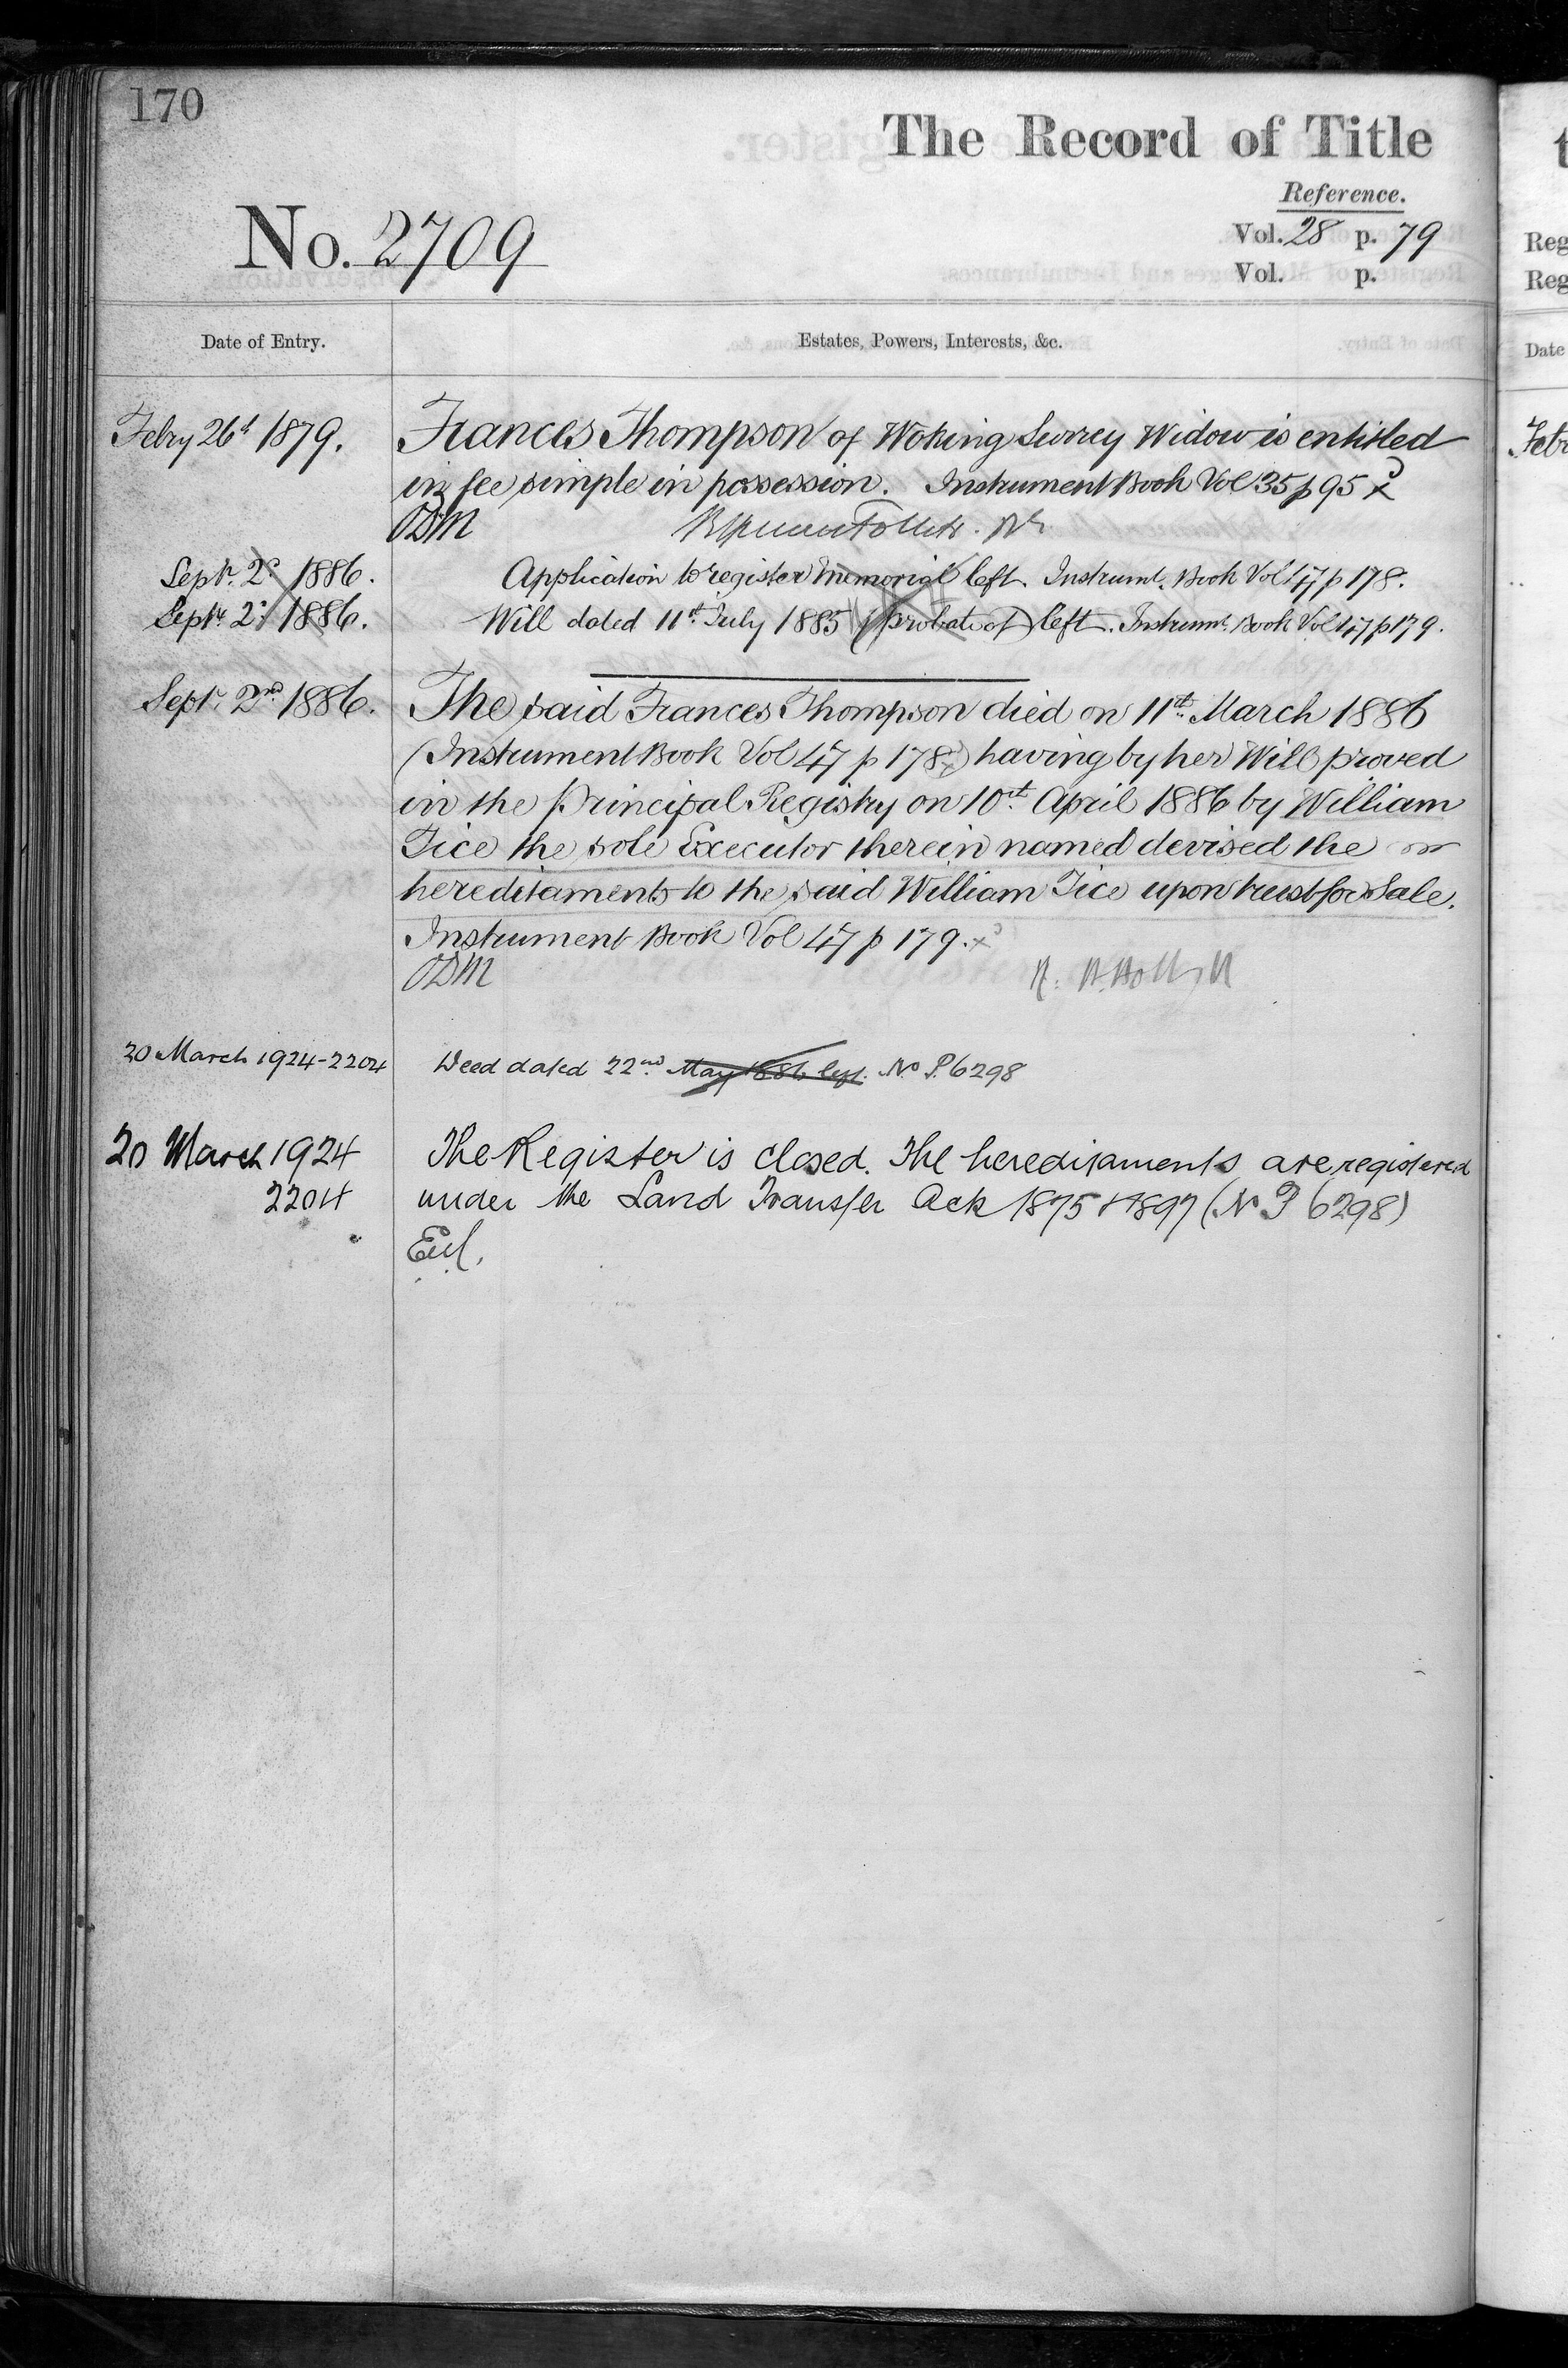 170
The Record of Title
Reference.
No. 2709
Vol. 28 p. 79
Vol. p.
Date of Entry.
Estates, Powers, Interests, &c.
Febry 26th 1879.
Frances Thompson of Woking Surrey Widow is entitled
in fee simple in possession. Instrument Book Vol 35 p 95
ODM
Septr. 2d 1886.
Application to register memorial left. Instrumt. Book Vol 47 p 178.
Septr. 2d 1886.
Will dated 11th July 1885 (probate of) left. Instrumt. Book Vol 47 p 179.
Septr. 2nd 1886.
The said Frances Thompson died on 11th March 1886
(Instrument Book Vol 47 p 178) having by her Will proved
in the Principal Registry on 10th April 1886 by William
Tice the sole Executor therein named devised the
hereditaments to the said William Tice upon trust for Sale.
Instrument Book Vol 47 p 179.
ODM
20 March 1924-2204
Deed dated 22nd May 1886 left. No P.6298
20 March 1924
The Register is closed. The hereditaments are registered
2204
under the Land Transfer Acts 1875 & 1897 (No P 6298)
Reg
Reg
Date
Feb